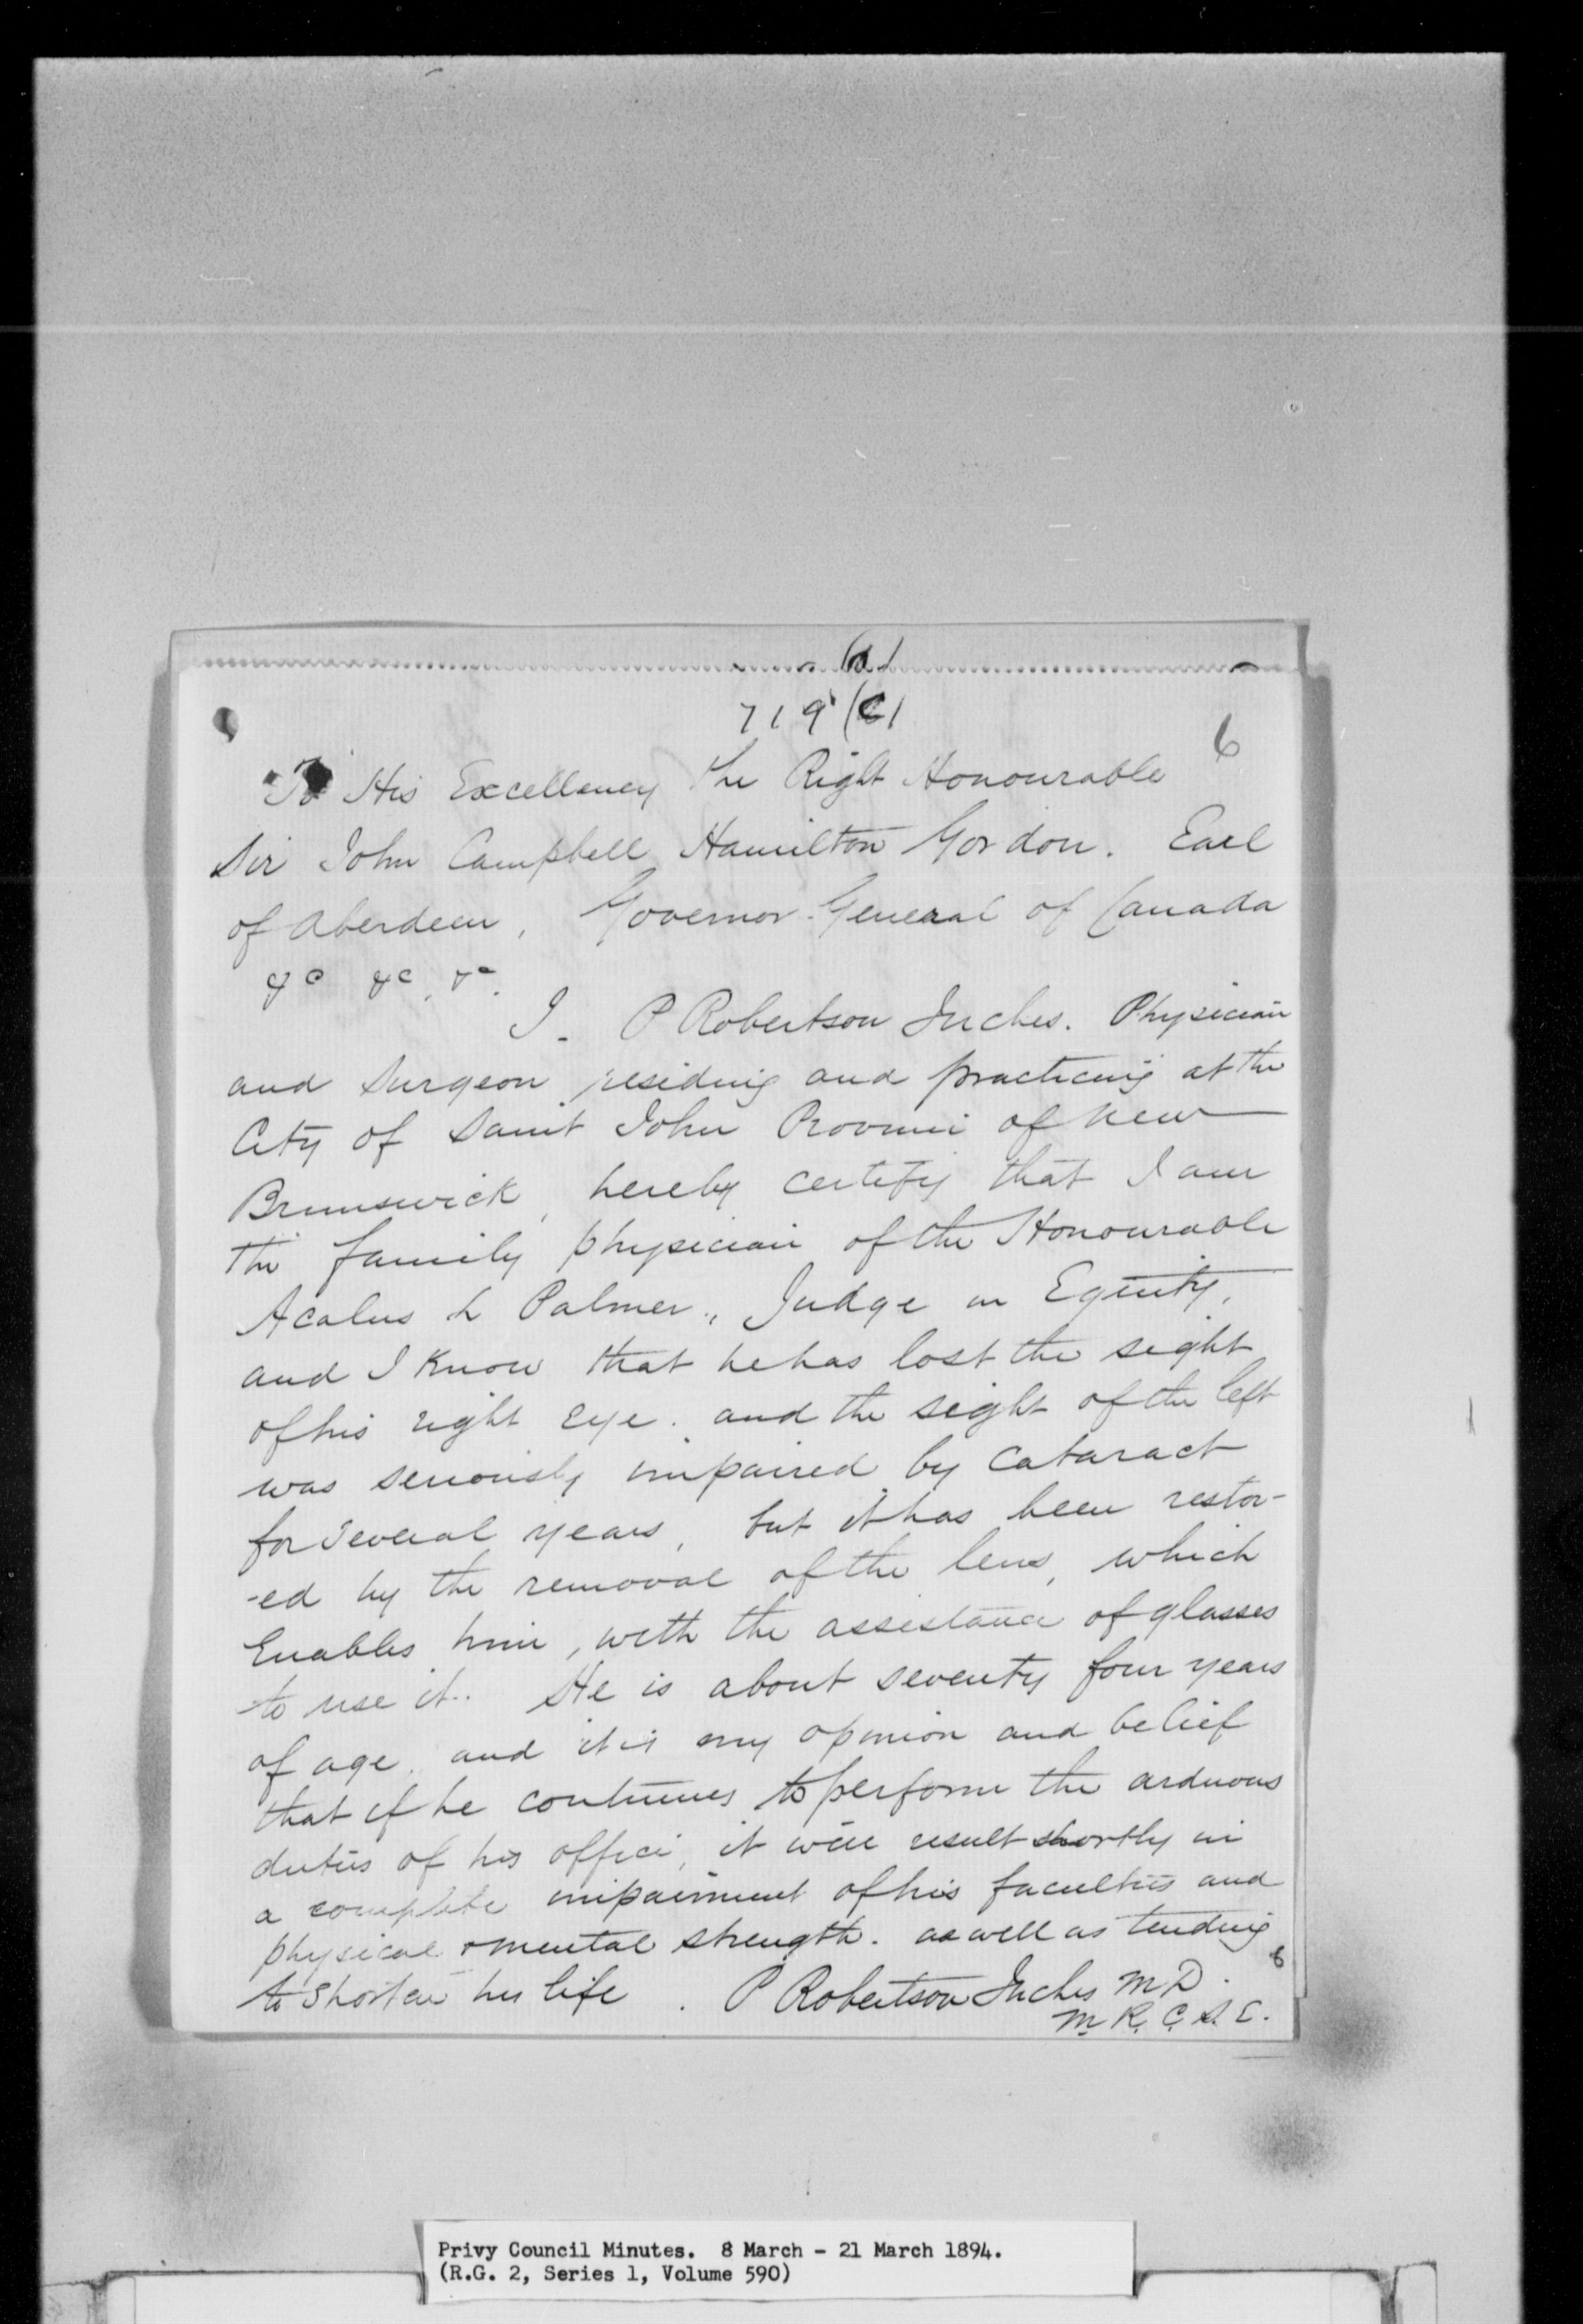 719 (C)
6
To His Excellency the Right Honourable
Sir John Campbell Hamilton Gordon. Earl
of Aberdeen, Governor-General of Canada
&c &c, &c.
I. P Robertson Inches. Physician
and Surgeon residing and practicing at the
City of Saint John Province of New
Brunswick, hereby certify that I am
the family physician of the Honourable
Acalus L Palmer., Judge in Equity,
and I know that he has lost the sight
of his right eye. and the sight of the left
was seriously impaired by cataract
for several years, but it has been restor-
-ed by the removal of the lens, which
Enables him, with the assistance of glasses
to use it. He is about seventy four years
of age. and it is my opinion and belief
that if he continues to perform the arduous
duties of his office, it will result shortly in
a complete impairment of his faculties and
physical & mental strength. as well as tending
to shorten his life. P Robertson Inches M D.
M. R. C. S. E.
6
Privy Council Minutes. 8 March - 21 March 1894.
(R.G. 2, Series 1, Volume 590)